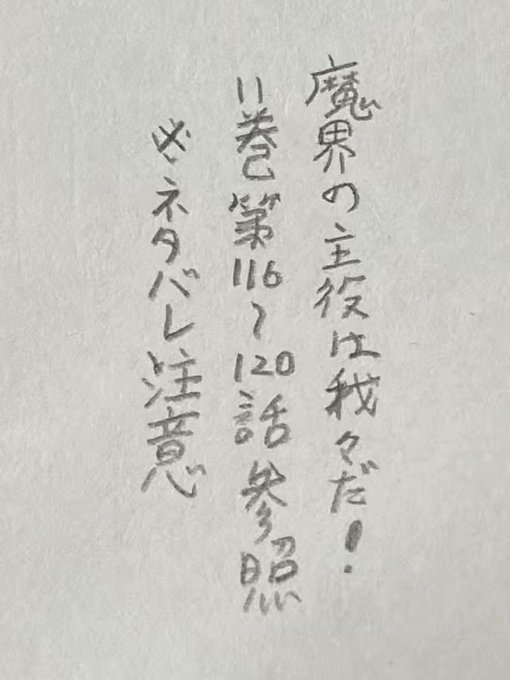 魔界の主役は我々だ！
11巻第116～120話参照
※ネタバレ注意